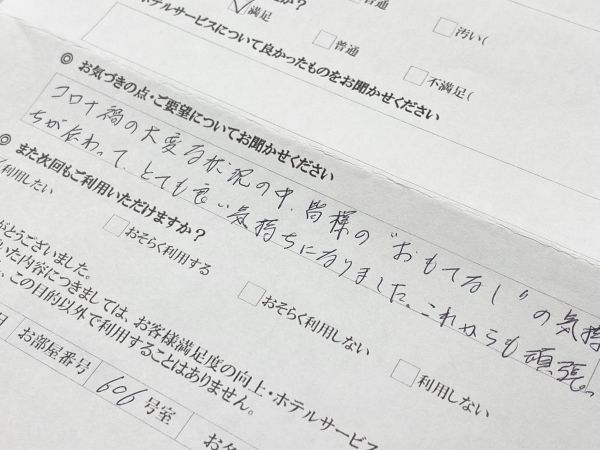 が?
普通
✓満足
□汚い(
ホテルサービスについて良かったものをお聞かせください
□普通
□不満足(
◎ お気づきの点・ご要望についてお聞かせください
コロナ禍の大変な状況の中、皆様の“おもてなし”の気持
ちが伝わって、とても良い気持ちになりました。これからも頑張っ
◎ また次回もご利用いただけますか?
利用したい
□おそらく利用する
□おそらく利用しない
□利用しない
がとうございました。
いた内容につきましては、お客様満足度の向上・ホテルサービス
、この目的以外で利用することはありません。
日
お部屋番号
606号室
お名